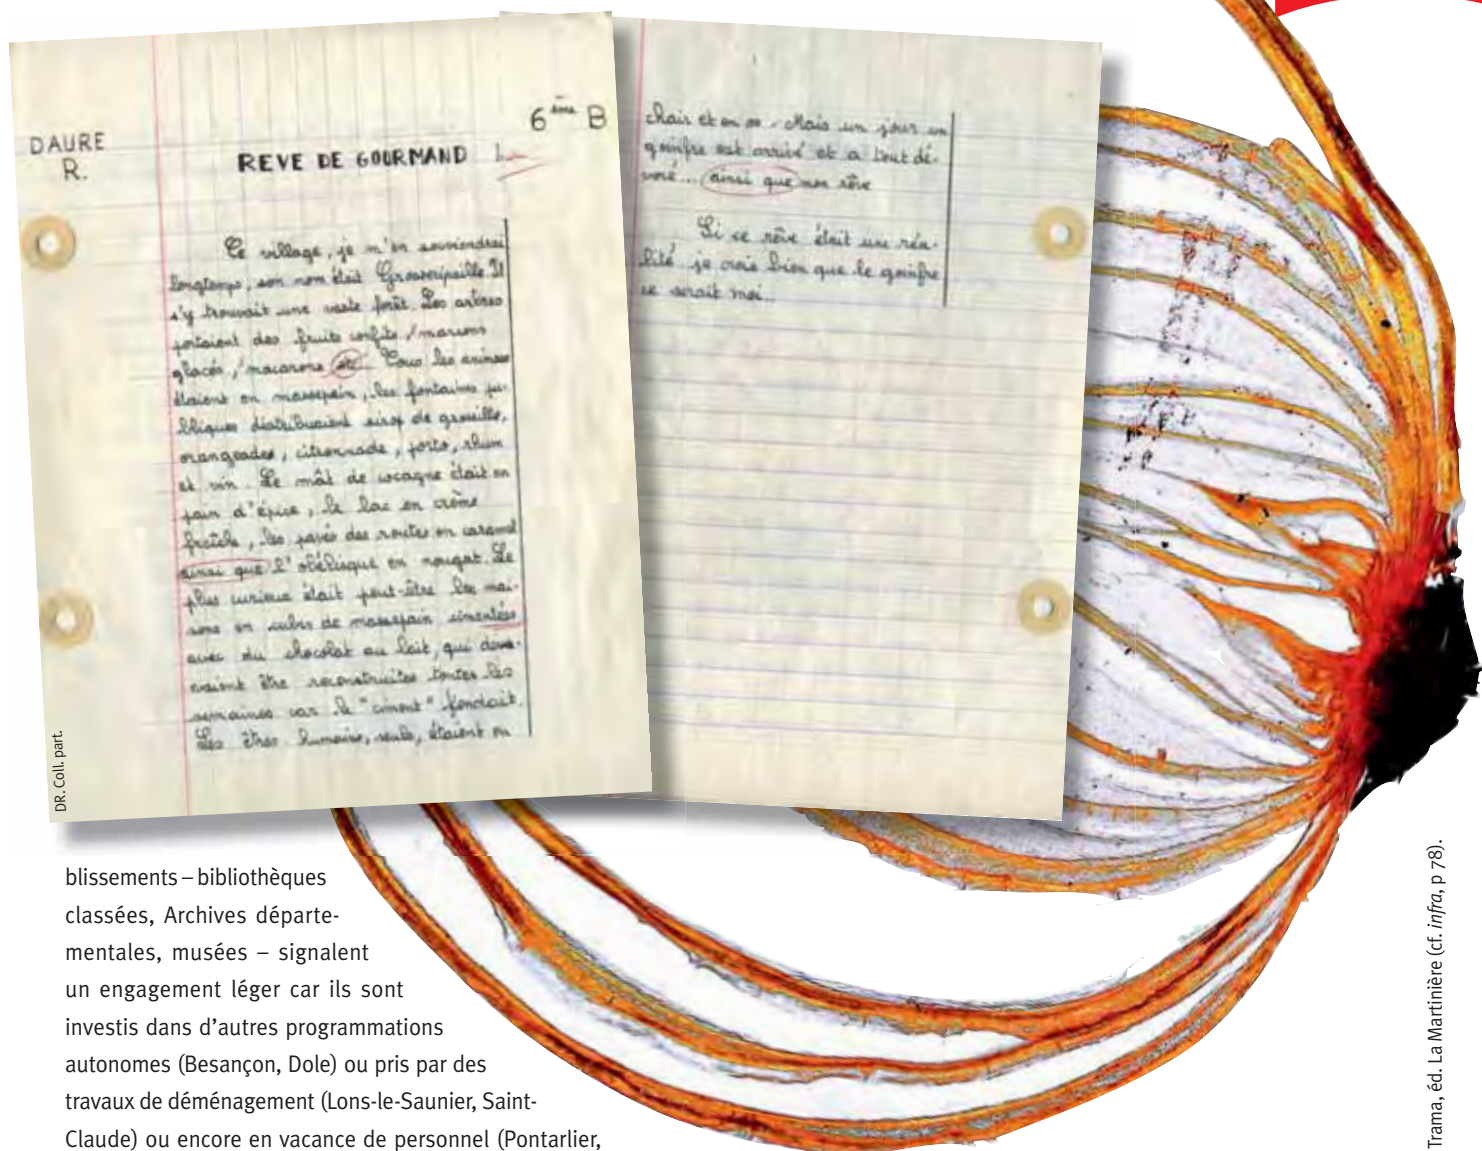 DAURE
R.
6ème B
REVE DE GOURMAND
Ce village, je m'en souviendrai
longtemps, son nom était Grosseripaille. Il
s'y trouvait une vaste forêt. Les arbres
portaient des fruits confits, marrons
glacés, macarons etc. Tous les animaux
étaient en massepain, les fontaines pu-
bliques distribuaient sirop de groseille,
orangeades, citronnade, porto, rhum
et vin. Le mât de cocagne était en
pain d'épice, le lac en crème
fraîche, les pavés des routes en caramel
ainsi que l'obélisque en nougat. Le
plus curieux était peut-être les mai-
sons en cubes de massepain cimentées
avec du chocolat au lait, qui deve-
naient être reconstruites toutes les
semaines car le "ciment" fondait.
Les êtres humains, seuls, étaient en
chair et en os. Mais un jour un
goinfre est arrivé et a tout dé-
voré... ainsi que mon rêve
Si ce rêve était une réa-
lité je crois bien que le goinfre
ce serait moi...
DR. Coll. part.
blissements – bibliothèques
classées, Archives départe-
mentales, musées – signalent
un engagement léger car ils sont
investis dans d'autres programmations
autonomes (Besançon, Dole) ou pris par des
travaux de déménagement (Lons-le-Saunier, Saint-
Claude) ou encore en vacance de personnel (Pontarlier,
Trama, éd. La Martinière (cf. infra, p 78).